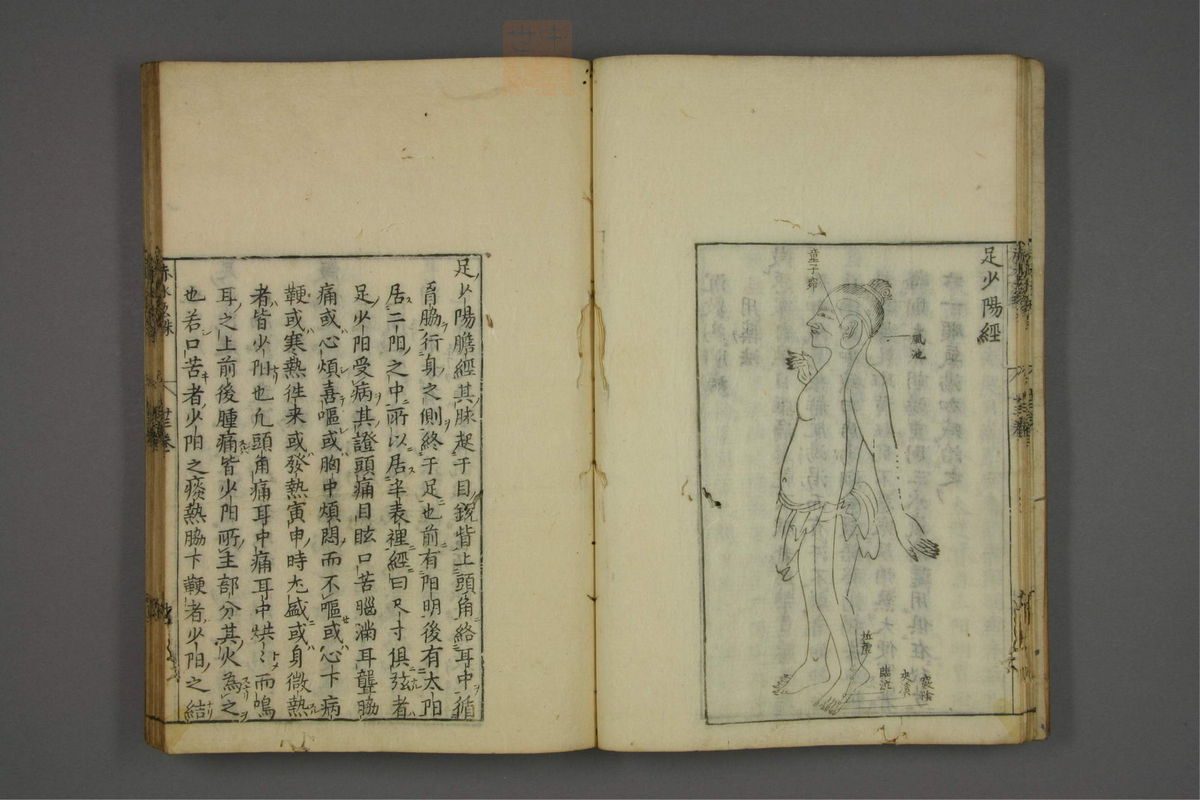 足少陽經
童子窌
風池
臨泣
足少陽膽經其脉起于目銳眥上頭角絡耳中循
胷脇行身之側終于足也前有陽明後有太陽
居二阳之中所以居半表裡經曰尺寸俱弦者
足少阳受病其證頭痛目眩口苦腦滿耳聾脇
痛或心煩喜嘔或胸中煩悶而不嘔或心下病
鞕或寒熱徃来或發熱寅申時尤盛或身微熱
者皆少阳也凢頭角痛耳中痛耳中烘〻而鳴
耳之上前後腫痛皆少阳所主部分其火為之
也若口苦者少阳之痰熱脇下鞕者少阳之結
赤水玄珠